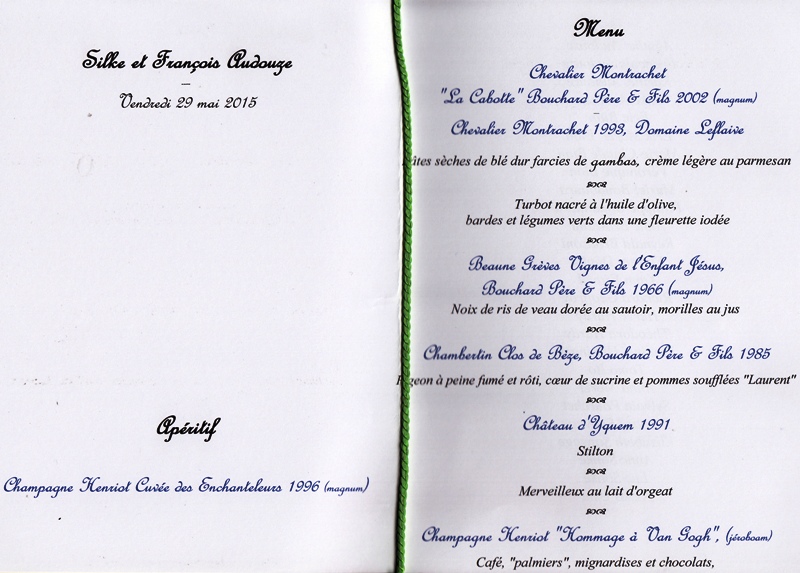 Silke et François Audouze
Vendredi 29 mai 2015
Apéritif
Champagne Henriot Cuvée des Enchanteleurs 1996 (magnum)
Menu
Chevalier Montrachet
"La Cabotte" Bouchard Père & Fils 2002 (magnum)
Chevalier Montrachet 1993, Domaine Leflaive
sèches de blé dur farcies de gambas, crème légère au parmesan
Turbot nacré à l'huile d'olive,
bardes et légumes verts dans une fleurette iodée
Beaune Grèves Vignes de l'Enfant Jésus,
Bouchard Père & Fils 1966 (magnum)
Noix de ris de veau dorée au sautoir, morilles au jus
Chambertin Clos de Bèze, Bouchard Père & Fils 1985
à peine fumé et rôti, cœur de sucrine et pommes soufflées "Laurent"
Château d'Yquem 1991
Stilton
Merveilleux au lait d'orgeat
Champagne Henriot "Hommage à Van Gogh", (jéroboam)
Café, "palmiers", mignardises et chocolats,